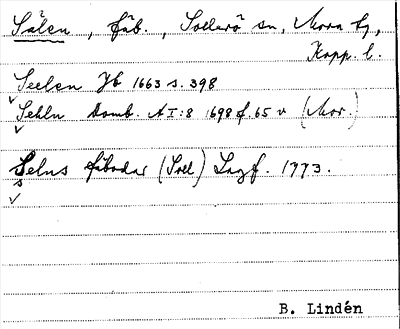 Sälen, fäb., Sollerö sn, Mora tg,
Kopp. l.
Seelen Jb 1663 s. 398
Sehln Domb. AI:8 1698 f. 65 v (Mor.)
Selns fäbodar (Soll) Lagf. 1773.
B. Lindén